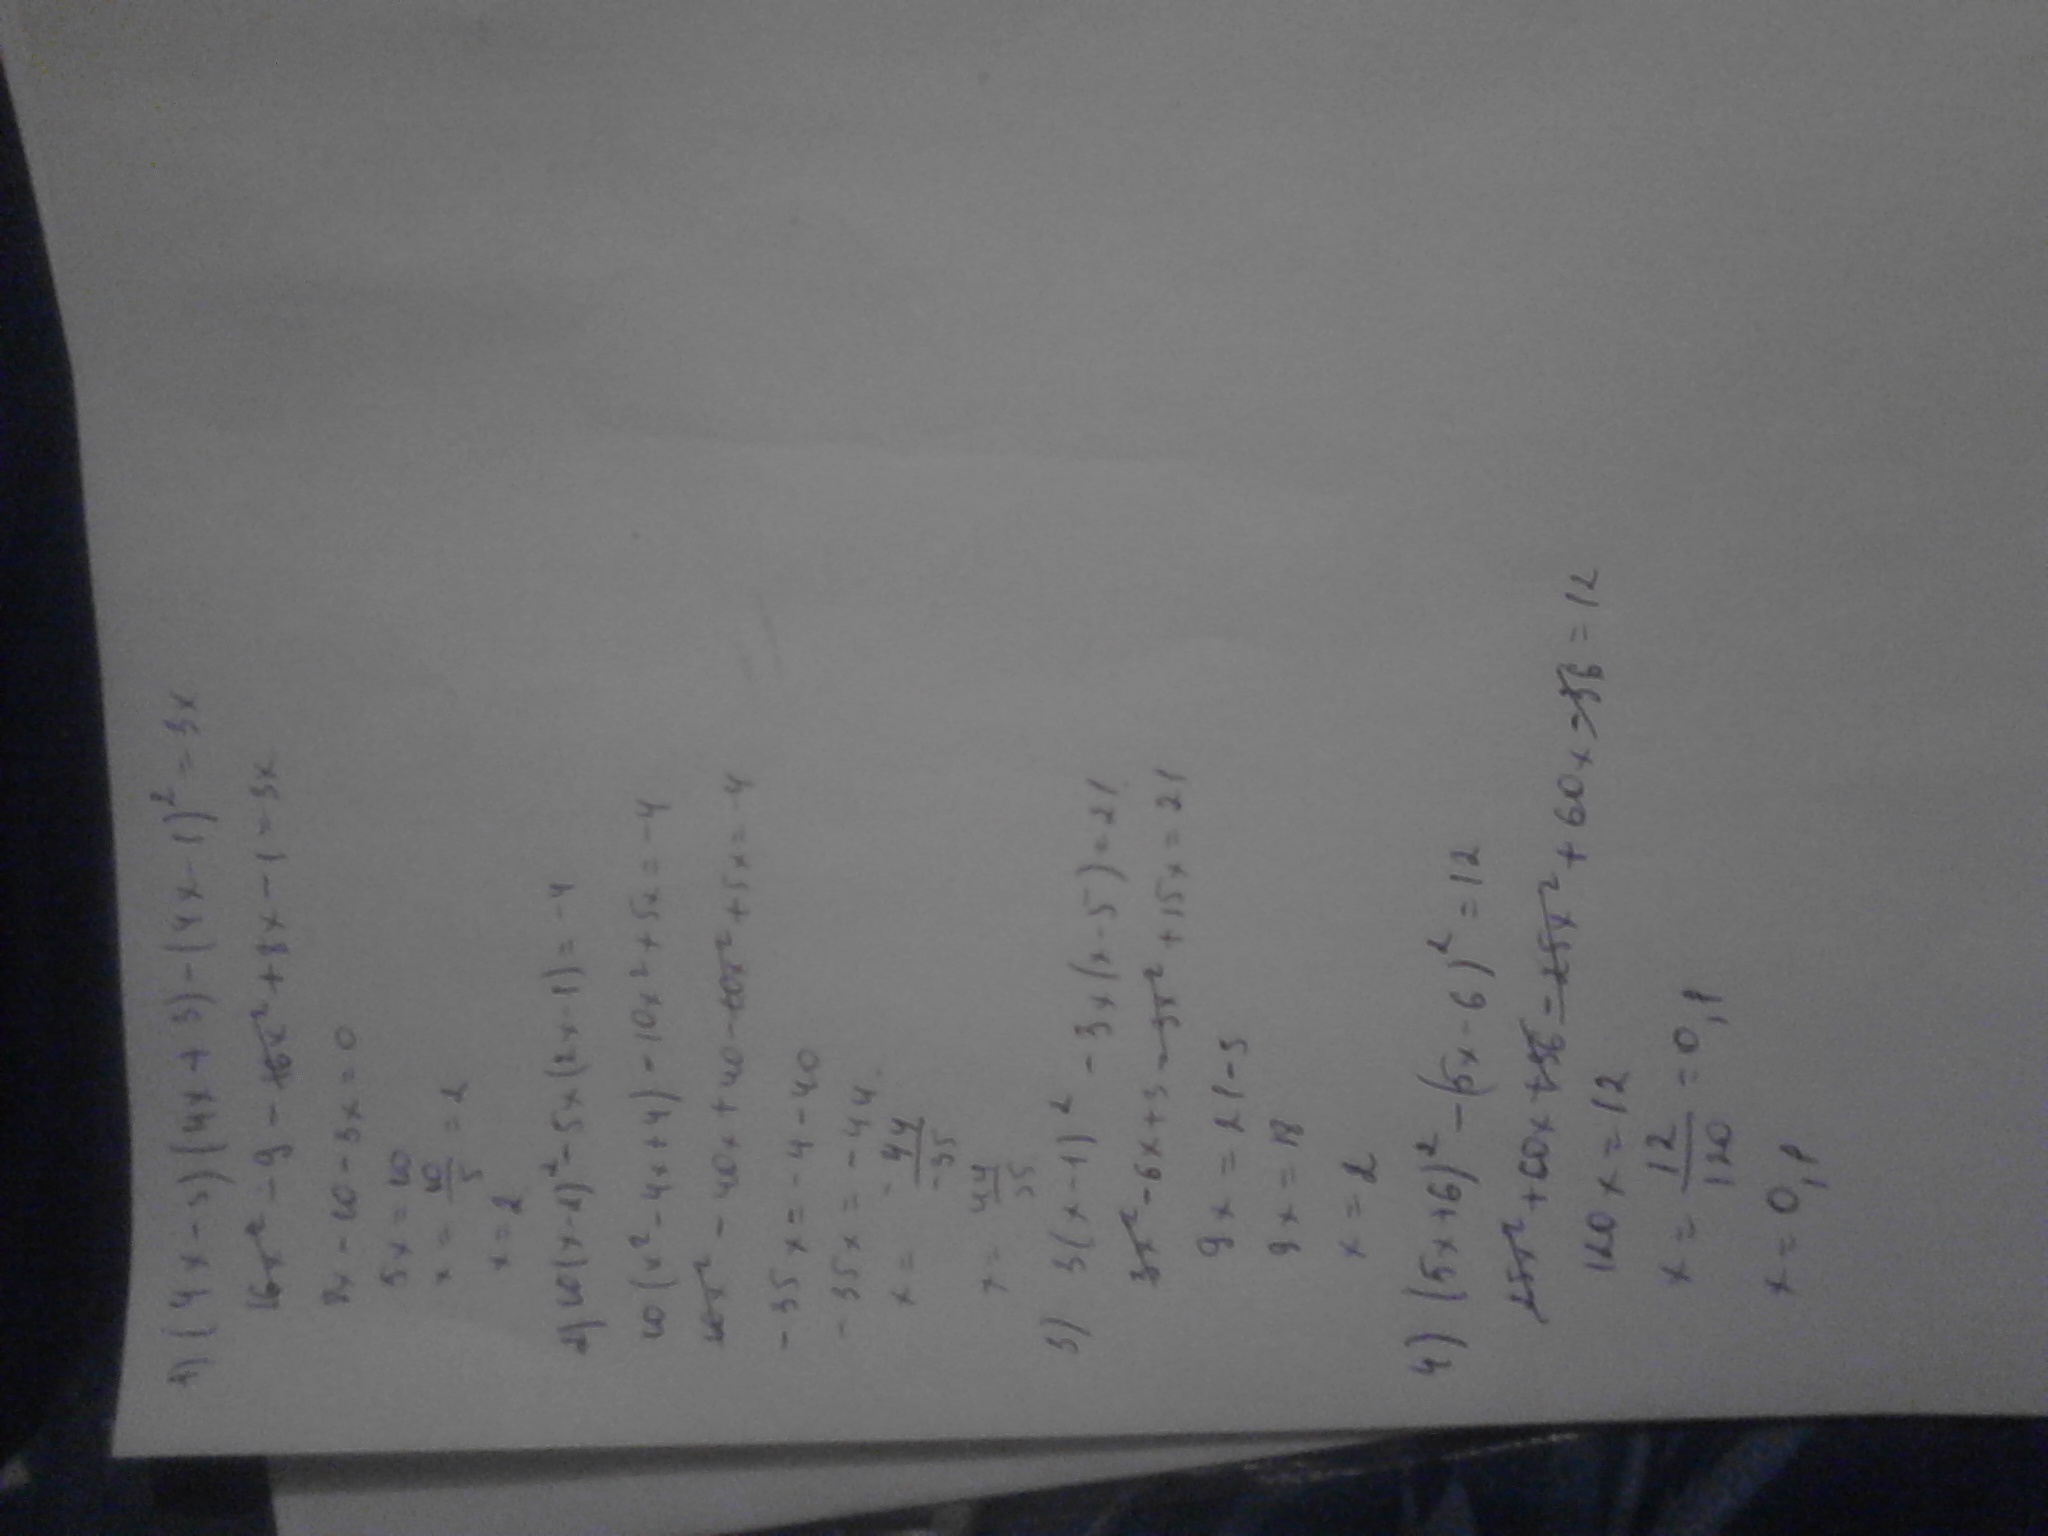 1) (4x-3)(4x+3)-(4x-1)²=3x
16x²-9-16x²+8x-1=3x
8x-10-3x=0
5x=10
x=10/5=2
x=2
2) 10(x-2)²-5x(2x-1)=-4
10(x²-4x+4)-10x²+5x=-4
10x²-40x+40-10x²+5x=-4
-35x=-4-40
-35x=-44
x=-44/-35
x=44/35
3) 3(x-1)²-3x(x-5)=21
3x²-6x+3-3x²+15x=21
9x=21-3
9x=18
x=2
4) (5x+6)²-(5x-6)²=12
25x²+60x+36-25x²+60x-36=12
120x=12
x=12/120=0,1
x=0,1